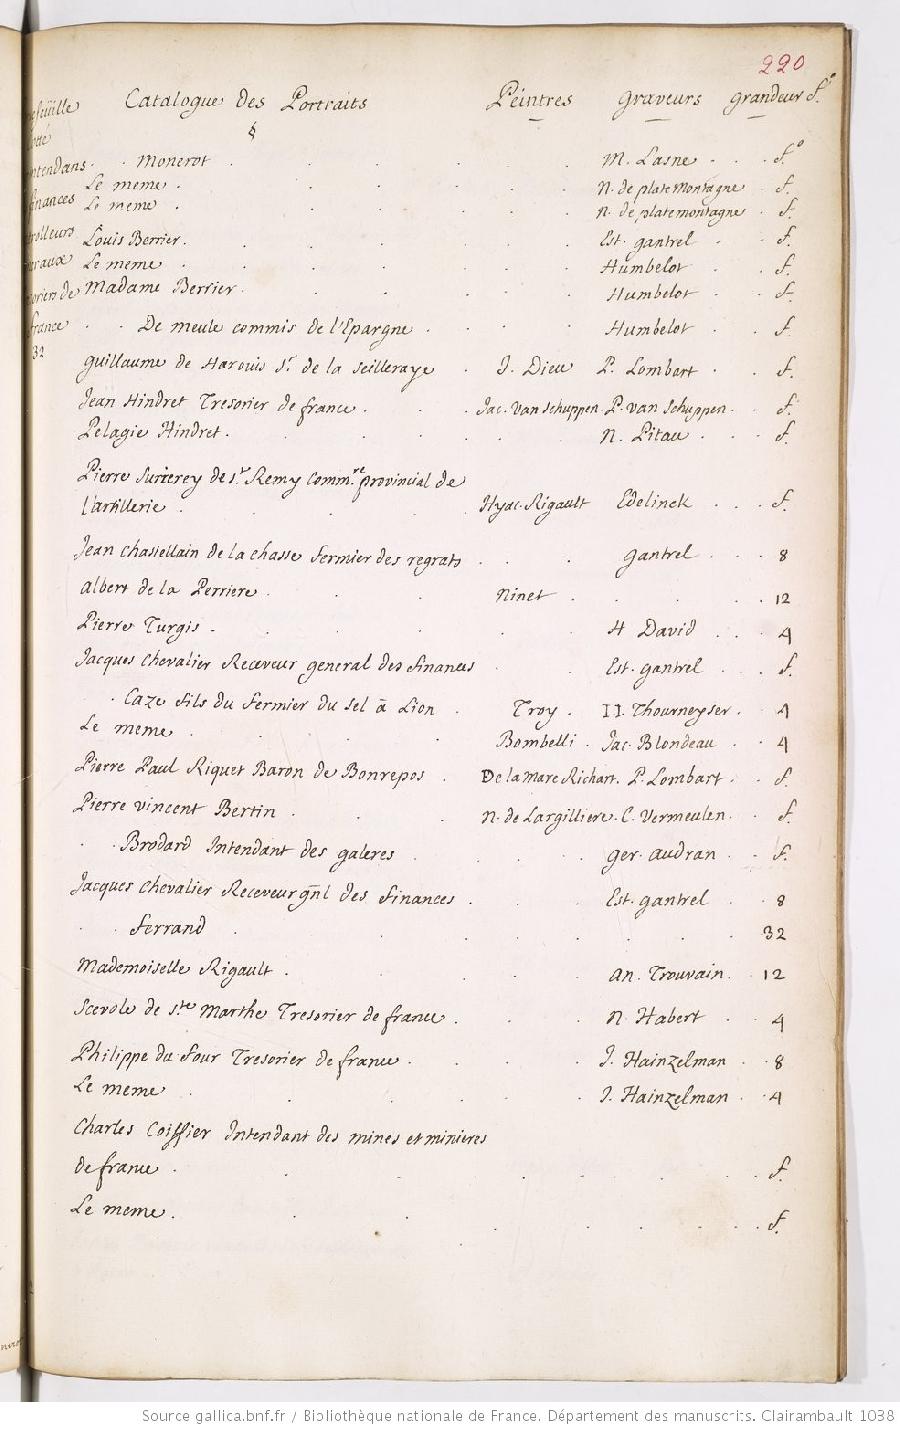 220
Catalogue des Portraits Peintres Graveurs grandeur f.o
§
Monerot M. Lasne f.o
Le meme N. de plate Montagne f.
Le meme N. de platemontagne f.
Louis Berrier. Est. gantrel f.
Le meme Humbelot f.
Madame Berrier Humbelot f.
De meule commis de l'Epargne Humbelot f.
guillaume de Harouis Sr. de la seilleraye J. Dieu P. Lombart f.
Jean Hindret Tresorier de france Jac. van schuppen P. van schuppen f.
Pelagie Hindret. N. Pitau f.
Pierre de st Remy Comm.re provincial de
l'artillerie Hyac. Rigault Edelinck f.
Jean chastellain de la chasse fermier des regrats gantrel 8
albert de la Perriere Ninet 12
Pierre Turgis H David 4
Jacques chevalier Receveur general des finances Est. gantrel f.
Caze fils du fermier du sel à Lion Troy II. Thourneyser 4
Le meme Bombelli Jac. Blondeau 4
Pierre Paul Riquet Baron de Bonrepos De la mare Richart. P. Lombart f.
Pierre vincent Bertin N. de Largilliere. C. Vermeulen. f.
Brodard Intendant des galeres ger. audran f.
Jacques chevalier Receveur gñl des finances Est. gantrel 8
ferrand 32
Mademoiselle Rigault an. Trouvain 12
Scevole de ste Marthe Tresorier de france N. Habert 4
Philippe du four Tresorier de france J. Hainzelman 8
Le meme J. Hainzelman 4
Charles Coiffier Intendant des mines et minieres
de france f.
Le meme f.
france
32
Source gallica.bnf.fr / Bibliothèque nationale de France. Département des manuscrits. Clairambault 1038